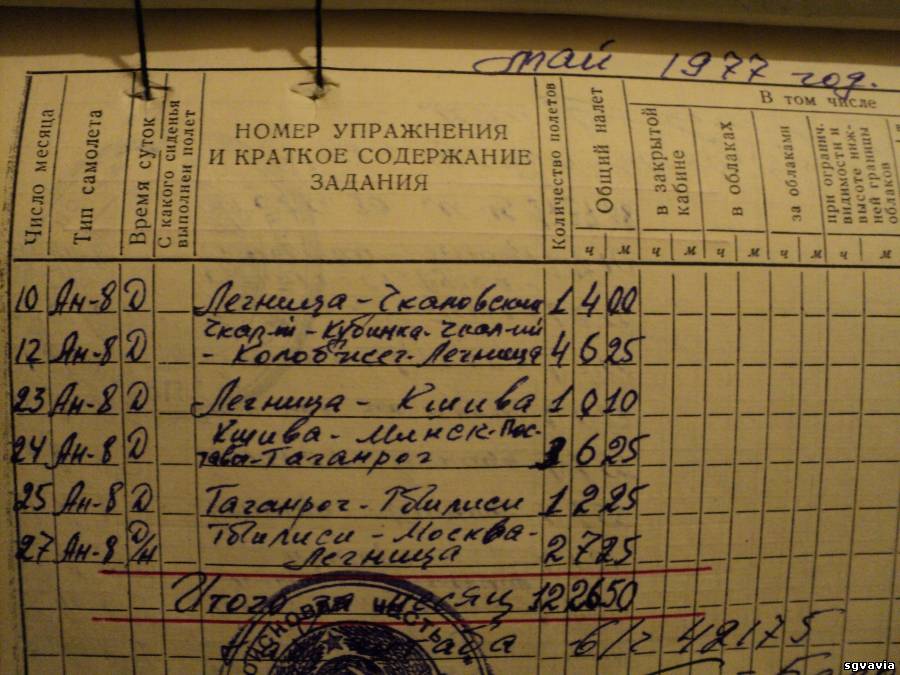 май 1977 год.
Число месяца
Тип самолета
Время суток
С какого сиденья выполнен полет
НОМЕР УПРАЖНЕНИЯ
И КРАТКОЕ СОДЕРЖАНИЕ
ЗАДАНИЯ
Количество полетов
Общий налет
В том числе
в закрытой кабине
в облаках
за облаками
при огранич. видимости и высоте нижней границы облаков
ч м ч м ч м ч м ч м
10 Ан-8 Д Легница - Чкаловский 1 4 00
Чкал-й - Кубинка - Чкал-ий
12 Ан-8 Д - Колобжег - Легница 4 6 25
23 Ан-8 Д Легница - Кшива 1 0 10
Кшива - Минск - Пол-
24 Ан-8 Д тава - Таганрог 3 6 25
25 Ан-8 Д Таганрог - Тбилиси 1 2 25
Тбилиси - Москва -
27 Ан-8 Д/Н Легница 2 7 25
Итого за месяц 12 26 50
в/ч 42175
sgvavia